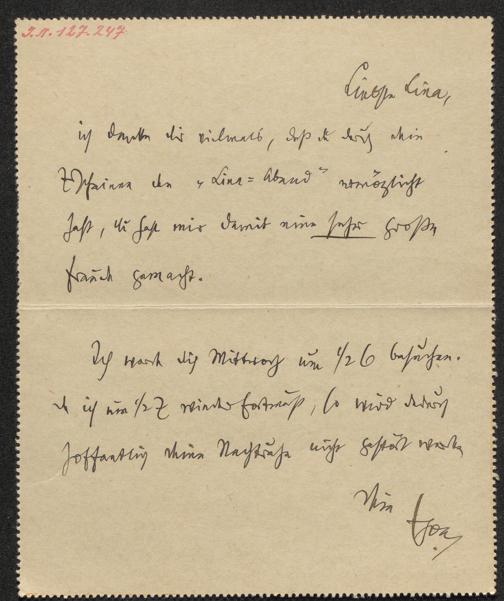 I.N. 127.247
Liebste Lina,
ich danke dir vielmals, daß du durch dein
Erscheinen den „Lina=Abend" ermöglicht
hast, du hast mir damit eine sehr große
Freude gemacht.
Ich werde dich Mittwoch um 1/2 6 besuchen.
da ich um 1/2 7 wieder fortmuß, so wird dadurch
hoffentlich deine Nachtruhe nicht gestört werden
Dein